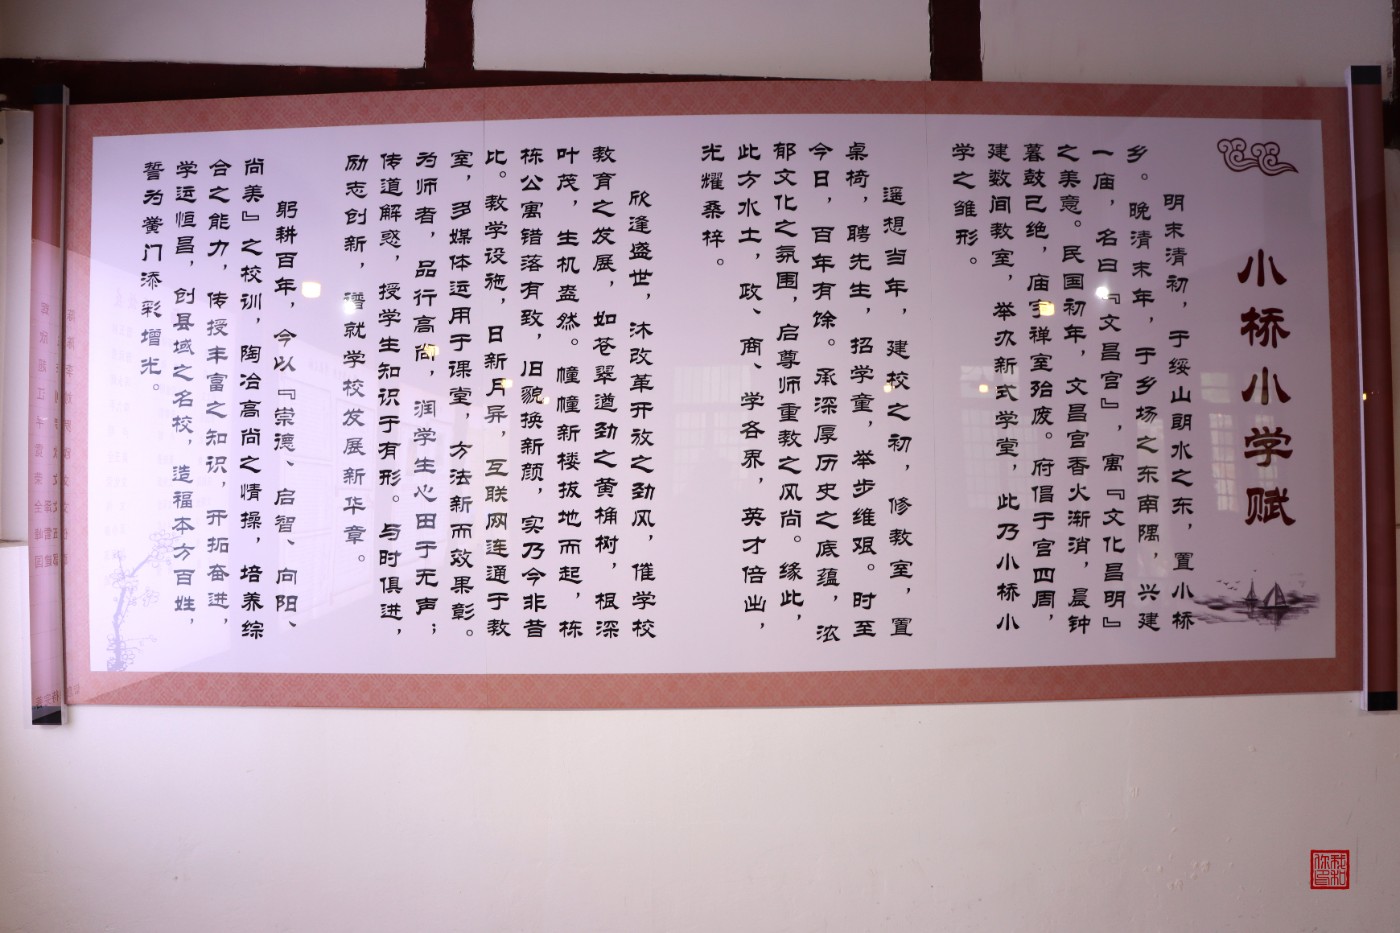 小桥小学赋
明末清初，于绥山朗水之东，置小桥
乡。晚清末年，于乡场之东南隅，兴建
一庙，名曰『文昌宫』，寓『文化昌明』
之美意。民国初年，文昌宫香火渐消，晨钟
暮鼓已绝，庙宇禅室殆废。府倡于宫四周，
建数间教室，举办新式学堂，此乃小桥小
学之雏形。
遥想当年，建校之初，修教室，置
桌椅，聘先生，招学童，举步维艰。时至
今日，百年有馀。承深厚历史之底蕴，浓
郁文化之氛围，启尊师重教之风尚。缘此，
此方水土，政、商、学各界，英才倍出，
光耀桑梓。
欣逢盛世，沐改革开放之劲风，催学校
教育之发展，如苍翠遒劲之黄桷树，根深
叶茂，生机盎然。幢幢新楼拔地而起，栋
栋公寓错落有致，旧貌换新颜，实乃今非昔
比。教学设施，日新月异，互联网连通于教
室，多媒体运用于课堂，方法新而效果彰。
为师者，品行高尚，润学生心田于无声；
传道解惑，授学生知识于有形。与时俱进，
励志创新，谱就学校发展新华章。
躬耕百年，今以『崇德、启智、向阳、
尚美』之校训，陶冶高尚之情操，培养综
合之能力，传授丰富之知识，开拓奋进，
学运恒昌，创县域之名校，造福本方百姓，
誓为黉门添彩增光。